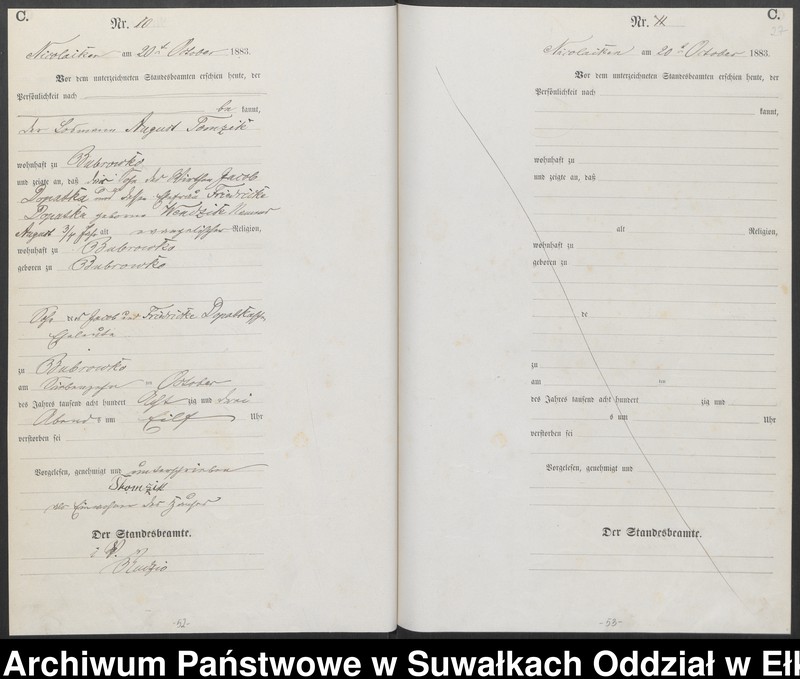 C.
Nr. 10
Nicolaiken am 20t October 1883.
Vor dem unterzeichneten Standesbeamten erschien heute, der
Persönlichkeit nach
be kannt,
der Losmann August Tomzik
wohnhaft zu Babrowko
und zeigte an, daß Sohn des Wirthen Jacob
Dopatka und dessen Ehefrau Friedricke
Dopatka geborene Wendzik Namens
August 3/4 Jahr alt evangelischer Religion,
wohnhaft zu Babrowko
geboren zu Babrowko
Sohn der Jacob und Friedricke Dopatkaschen
Eheleute
zu Babrowko
am Siebenzehn ten October
des Jahres tausend acht hundert Acht zig und drei
Abend s um Eilf Uhr
verstorben sei
Vorgelesen, genehmigt und unterschrieben
Stomzik
als Einwohner des Hauses
Der Standesbeamte.
i. V.
-52-
C.
27
Nr. 11
Nicolaiken am 20t October 1883.
Vor dem unterzeichneten Standesbeamten erschien heute, der
Persönlichkeit nach
kannt,
wohnhaft zu
und zeigte an, daß
alt Religion,
wohnhaft zu
geboren zu
de
zu
am ten
des Jahres tausend acht hundert zig und
s um Uhr
verstorben sei
Vorgelesen, genehmigt und
Der Standesbeamte.
-53-
Archiwum Państwowe w Suwałkach Oddział w Ełk